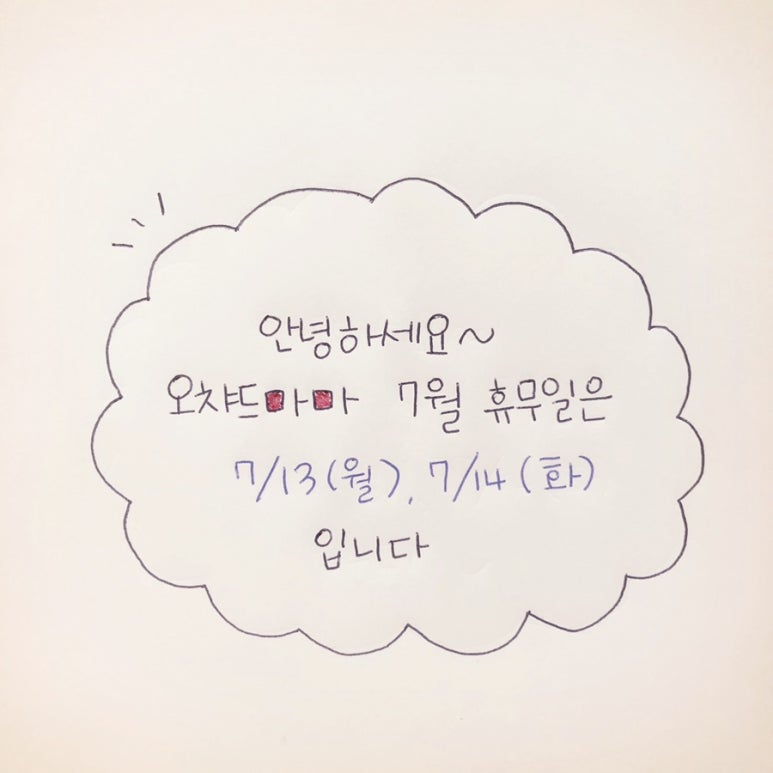 안녕하세요~
오챠드마마 7월 휴무일은
7/13(월), 7/14(화)
입니다